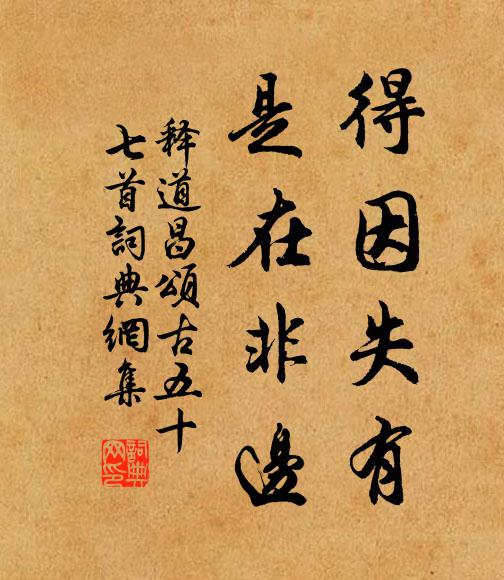 得因失有
是在非邊
释道昌頌古五十
七首詞典網集
詞典網印